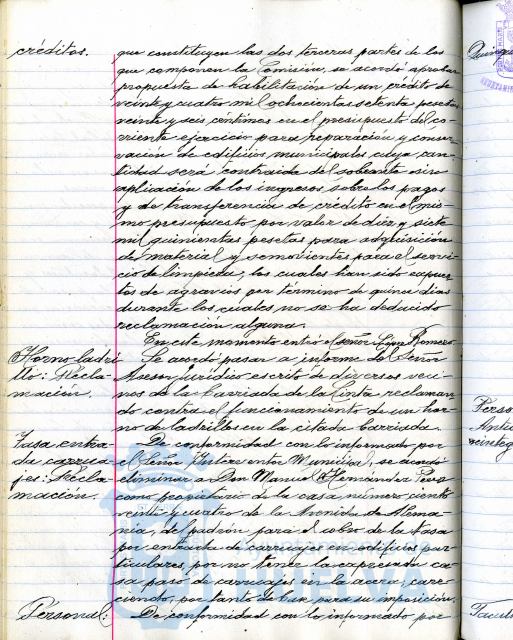 créditos.
que constituyen las dos terceras partes de los
que componen la Comisión, se acordó aprobar
propuesta de habilitación de un crédito de
veinte y cuatro mil ochocientas setenta pesetas
veinte y seis céntimos en el presupuesto del co-
rriente ejercicio para reparación y conser-
vación de edificios municipales cuya can-
tidad será contraida del sobrante sin
aplicación de los ingresos sobre los pagos
y de transferencia de crédito en el mis-
mo presupuesto por valor de diez y siete
mil quinientas pesetas para adquisición
de material y semovientes para el servi-
cio de limpieza, los cuales han sido expues-
tos de agravios por término de quince dias
durante los cuales no se ha deducido
reclamación alguna.
En este momento entró el señor López Romero
Horno ladri
llo: Recla-
mación.
Se acordó pasar a informe del Señor
Asesor Jurídico escrito de diversos veci-
nos de la barriada de la Cinta reclaman-
do contra el funcionamiento de un hor-
no de ladrillos en la citada barriada.
Tasa entra-
da carrua-
jes: Recla-
mación.
De conformidad con lo informado por
el Señor Interventor Municipal, se acordó
eliminar a Don Manuel Hernández
como propietario de la casa número ciento
veinte y cuatro de la Avenida de Alema-
nia, del padrón para el cobro de la tasa
por entrada de carruajes en edificios par-
ticulares, por no tener la expresada ca-
sa paso de carruajes en la acera, care-
ciendo, por tanto de base para su imposición.
Personal:
De conformidad con lo informado por
Ayuntamiento de
HUELVA